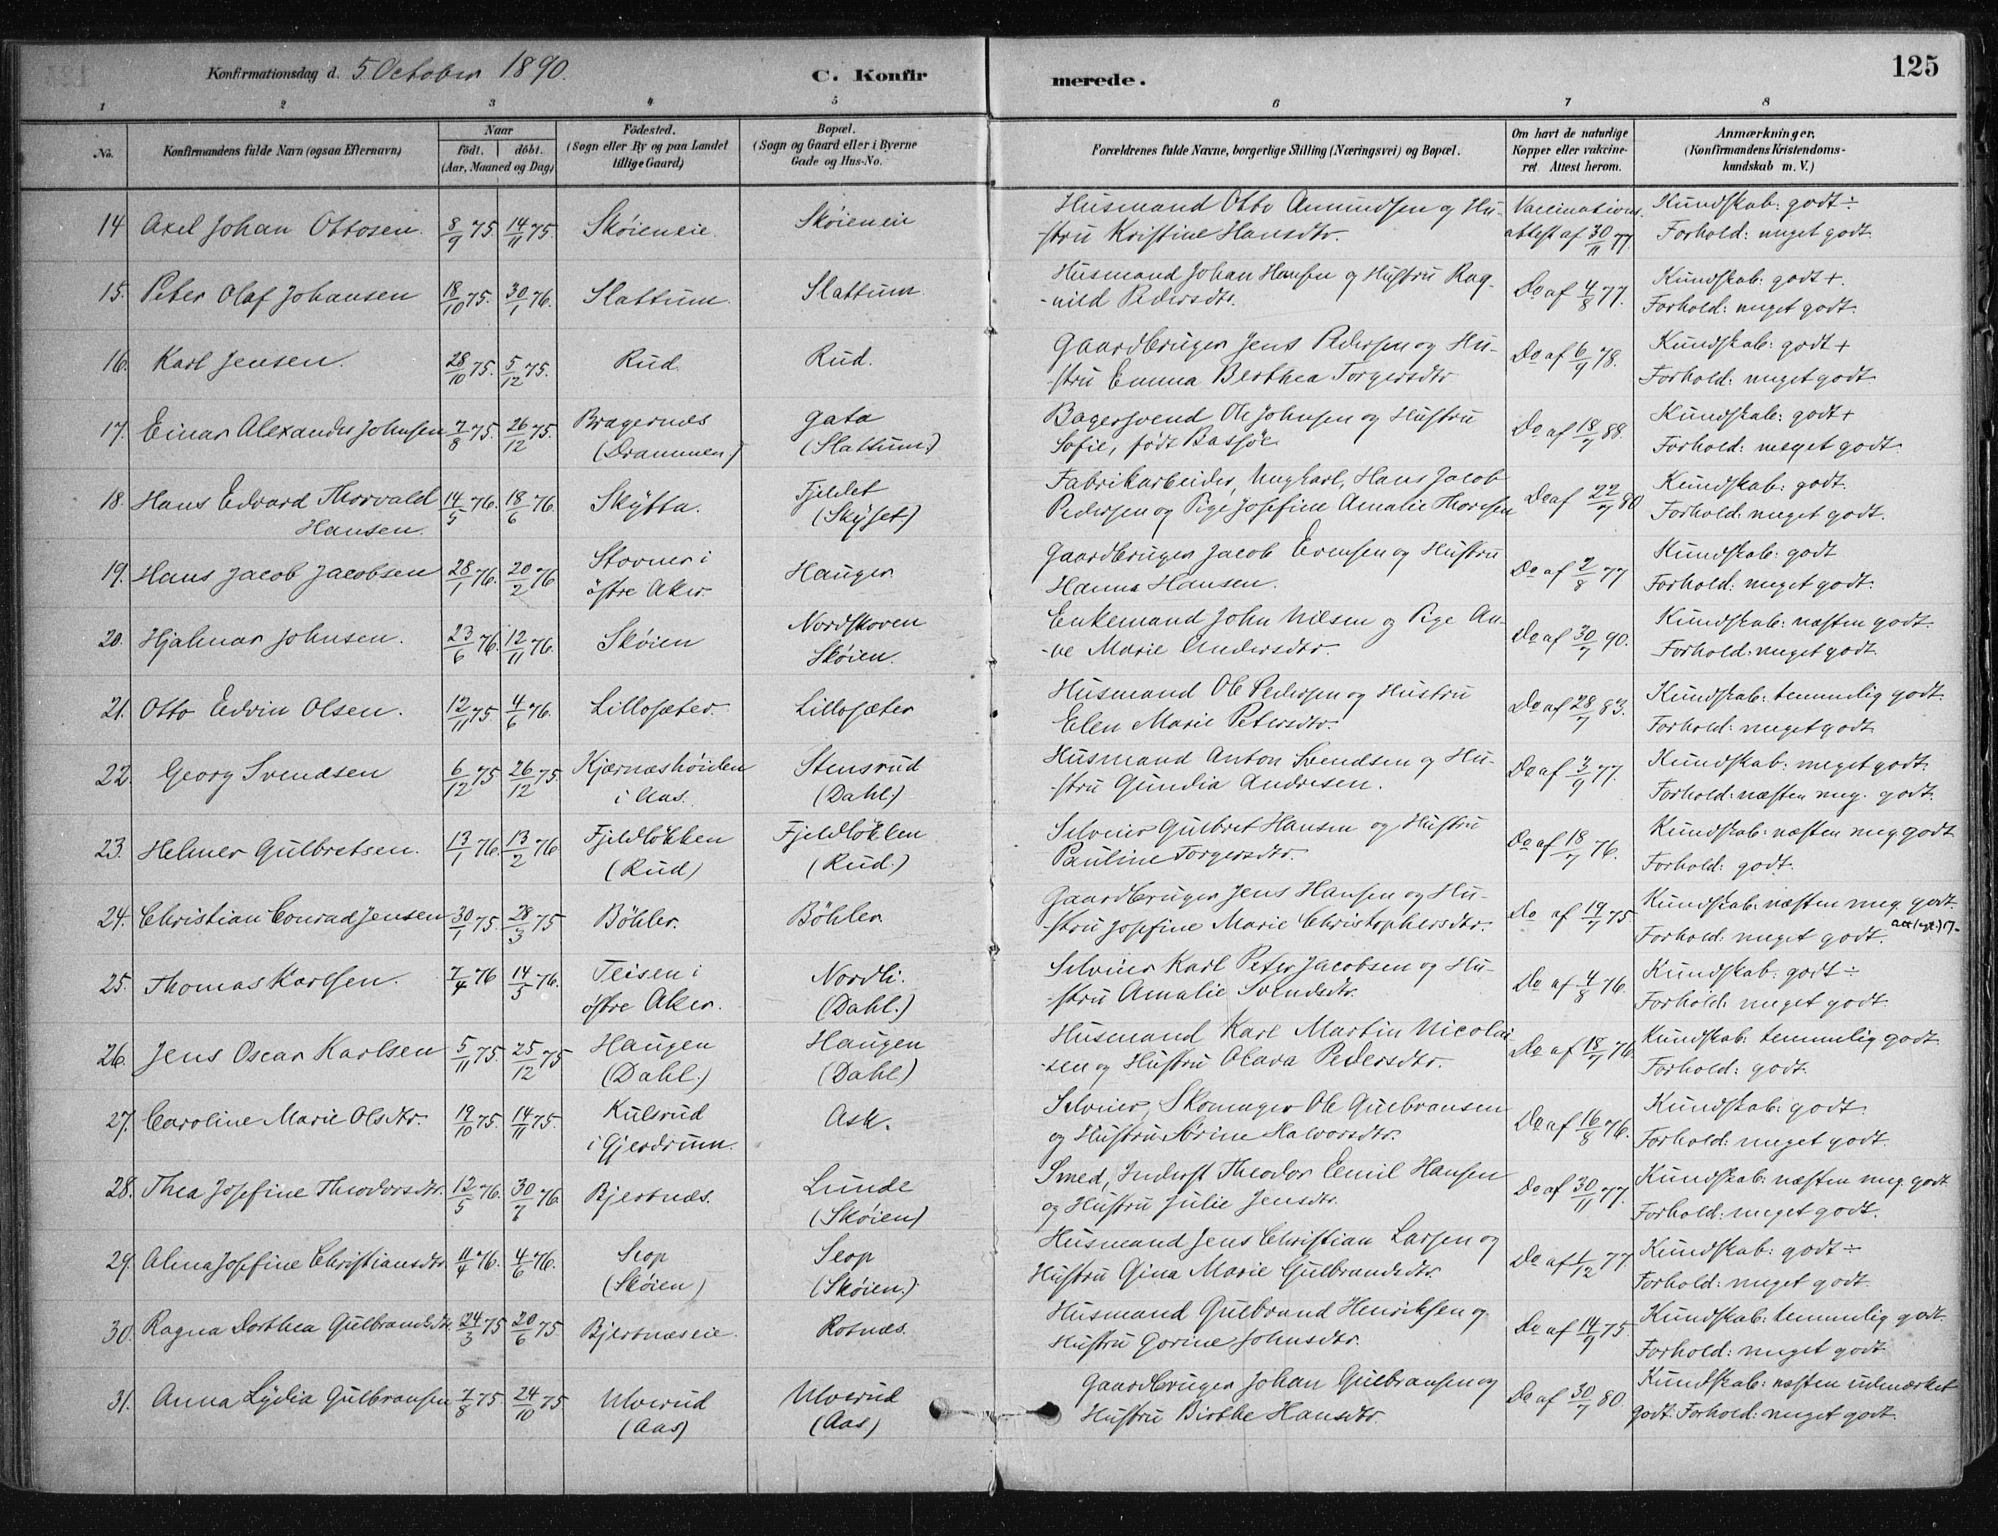 Konfirmationsdag d. 5 October 1890.
C. Konfirmerede.
125
1 2 3 4 5 6 7 8
No.
Konfirmandens fulde Navn (ogsaa Efternavn)
Naar
födt. döbt.
(Aar, Maaned og Dag)
Födested.
(Sogn eller By og paa Landet
tillige Gaard)
Bopæl.
(Sogn og Gaard eller i Byerne
Gade og Hus-No.
Forældrenes fulde Navne, borgerlige Stilling (Næringsvei) og Bopæl.
Om havt de naturlige
Kopper eller vakcine-
ret. Attest herom.
Anmærkninger,
(Konfirmandens Kristendoms-
kundskab m. V.)
14 Axel Johan Ottosen. 8/9 75. 14/11 75. Skøieneie. Skøieneie Husmand Otto Amundsen og Hu- Vaccinations. Kundskab: godt ÷
stru Kristine Hansdtr. attest af 30/11 77. Forhold: meget godt.
15. Peter Olaf Johansen 18/10 75. 30/1 76. Slattum. Slattum. Husmand Johan Hansen og Hustru Rag- Do af 4/8 77. Kundskab: godt +.
-nild Pedersdtr. Forhold: meget godt.
16. Karl Jensen. 28/10 75. 5/12 75. Rud. Rud. Gaardbruger Jens Pedersen og Hu- Do af 6/9 78. Kundskab: godt +
-stru Emma Berthea Torgersdtr Forhold: meget godt.
17. Einar Alexander Johnsen 7/8 75. 26/12 75. Bragernæs Gata Bagersvend Ole Johnsen og Hustru Do af 18/7 88. Kundskab: godt +
(Drammen) (Slattum.) Sofie, født Forhold: meget godt.
18. Hans Edvard Thorvald 14/5 76. 18/6 76. Skÿtta. Fjeldet Fabrikarbeider, Ungkarl, Hans Jacob Do af 22/7 80 Kundskab: godt.
Hansen. (Skÿset) Pedersen og Pige Josefine Amalie Thoresen Forhold: meget godt.
19. Hans Jacob Jacobsen 28/1 76. 20/2 76 Stovner i Hauger Gaardbruger Jacob Evensen og Hustru Do af 2/8 77 Kundskab: godt
østre Aker. Hanna Hansen. Forhold: meget godt.
20. Hjalmar Johnsen. 23/6 76. 12/11 76. Skøien Nordskoven Enkemand John Nilsen og Pige An- Do af 30/7 90. Kundskab: næsten godt.
Skøien. -ne Marie Andersdtr. Forhold: meget godt.
21. Otto Edvin Olsen. 12/11 75. 4/6 76. Lillosæter. Lillosæter Husmand Ole Pedersen og Hustru Do af 28/7 83. Kundskab: temmelig godt.
Elen Marie Petersdtr. Forhold: meget godt.
22. Georg Svendsen 6/12 75 26/12 75 Kjærneshøiden Stensrud Husmand Anton Svendsen og Hu- Do af 3/9 77. Kundskab: meget godt.
i Aas. (Dahl.) stru Gundia Andresen. Forhold: næsten meg. godt.
23. Helmer Gulbretsen. 13/1 76. 13/2 76 Fjeldløkken Fjeldløkken Selveier Gulbret Hansen og Hustru Do af 18/7 76. Kundskab: næsten meg godt
(Rud) (Rud.) Pauline Torgersdtr. Forhold: godt.
24. Christian Conrad Jensen 30/1 75 28/3 75 Bøhler. Bøhler. Gaardbruger Jens Hansen og Hu- Do af 19/7 75 Kundskab: næsten meg. godt.
-stru Josefine Marie Christophersdtr. Forhold: meget godt.
25. Thomas Karlsen. 7/4 76 14/5 76. Teisen i Nordli. Selveier Karl Peter Jacobsen og Hu- Do af 4/8 76. Kundskab: godt ÷
østre Aker. (Dahl.) -stru Amalie Svendsdtr. Forhold: meget godt.
26. Jens Oscar Karlsen 5/11 75. 25/12 75 Haugen Haugen Husmand Karl Martin Nicolai- Do af 18/7 76. Kundskab: temmelig godt.
(Dahl.) (Dahl) -sen og Hustru Olava Pedersdtr. Forhold: godt.
27. Caroline Marie Olsdtr. 19/10 75. 14/11 75. Kulsrud Ask. Selveier, Skomager Ole Gulbransen Do af 16/8 76. Kundskab: godt.
i Gjerdrum. og Hustru Sørine Halvorsdtr. Forhold: meget godt.
28. Thea Josefine Theodorsdtr. 12/5 76. 30/7 76. Bjertnæs. Lunde Smed, Inderst Theodor Eemil Hansen Do af 30/11 77. Kundskab: næsten meg. godt
(Skøien) og Hustru Julie Jensdtr. Forhold: meget godt.
29. Alma Josefine Christiansdtr 11/4 76. 4/6 76. Seop Seop Husmand Jens Christian Larsen og Do af 1/12 77. Kundskab: godt ÷
(Skøien) (Skøien.) Hustru Gina Marie Gulbrandsdtr. Forhold: meget godt.
30. Ragna Dorthea Gulbrandsdtr 24/3 75 20/6 75 Bjertnæseie. Rotnæs. Husmand Gulbrand Henriksen og Do af 14/9 75. Kundskab: temmelig godt.
Hustru Gorine Johnsdtr. Forhold: meget godt
31. Anna Lydia Gulbransen 7/8 75. 24/10 75 Ulverud Ulverud Gaardbruger Johan Gulbransen og Do af 30/7 80. Kundskab: næsten udmærket
(Aas) (Aas) Hustru Birthe Hansdtr. godt. Forhold: meget godt.